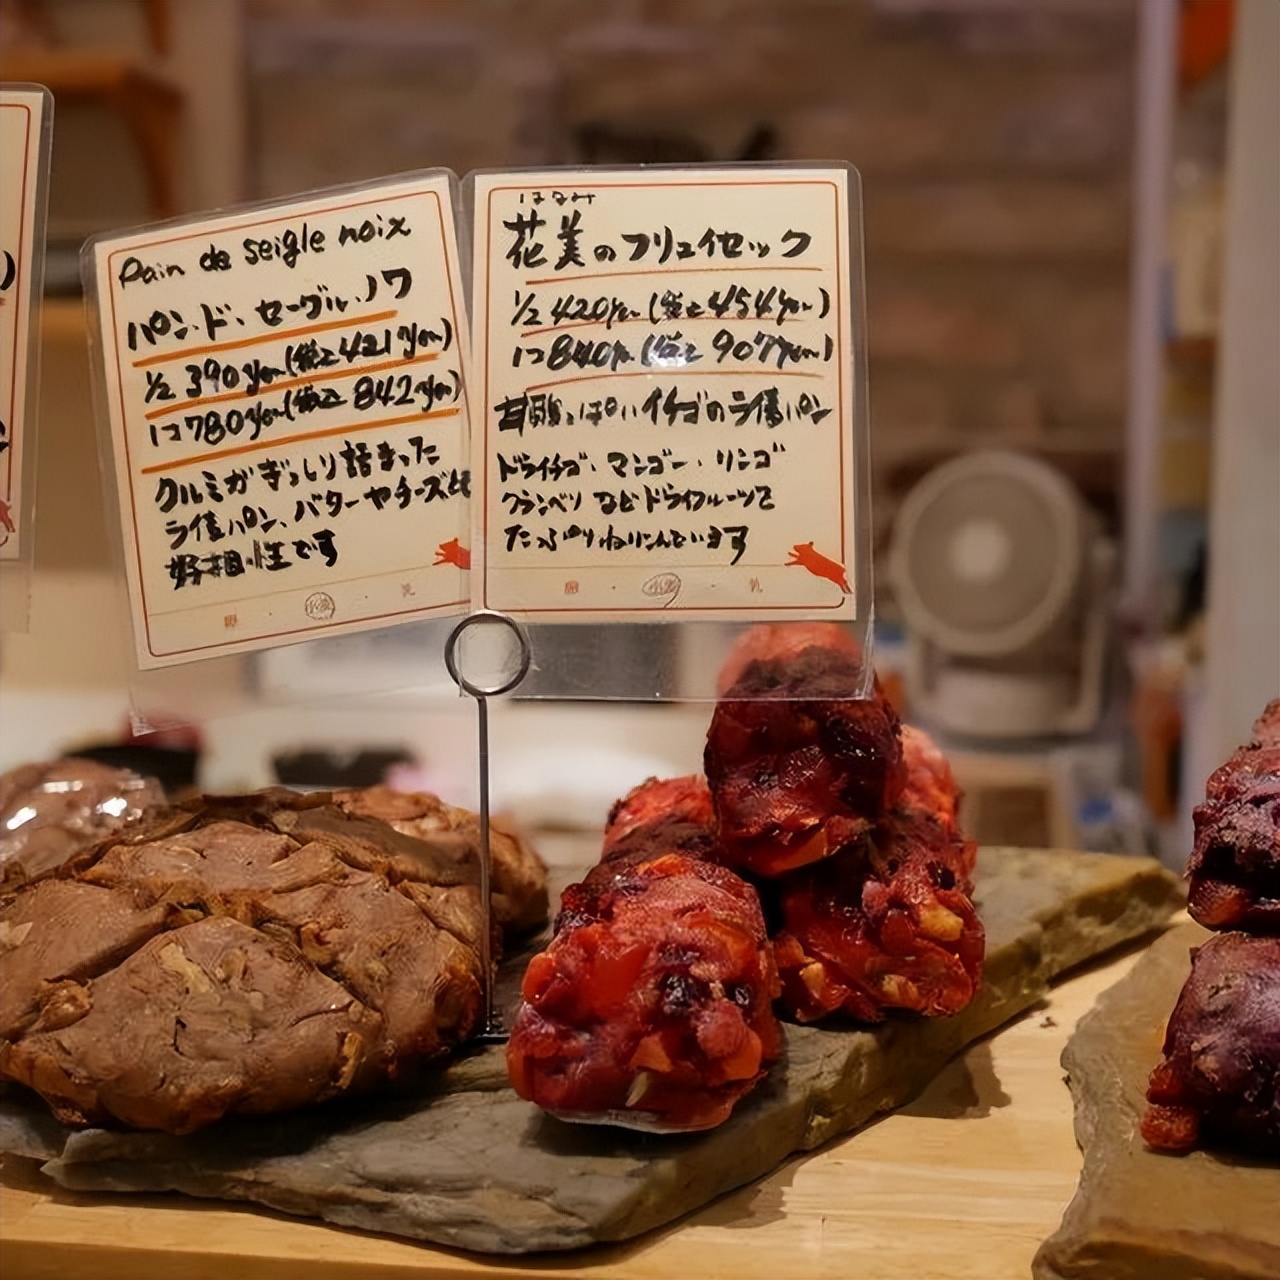 Pain de seigle noix
パン・ド・セーグル・ノワ
1/2 390yen(税込421yen)
1コ780yen(税込842yen)
クルミがぎっしり詰まった
ライ麦パン、バターやチーズとも
好相性です
卵 ・ 小麦 ・ 乳
はなみ
花美のフリュイセック
1/2 420yen(税込454yen)
1コ840yen(税込907yen)
甘酸っぱいイチゴのライ麦パン
ドライイチゴ・マンゴー・リンゴ
クランベリーなどドライフルーツを
たっぷりねりこんでいます
卵 ・ 小麦 ・ 乳